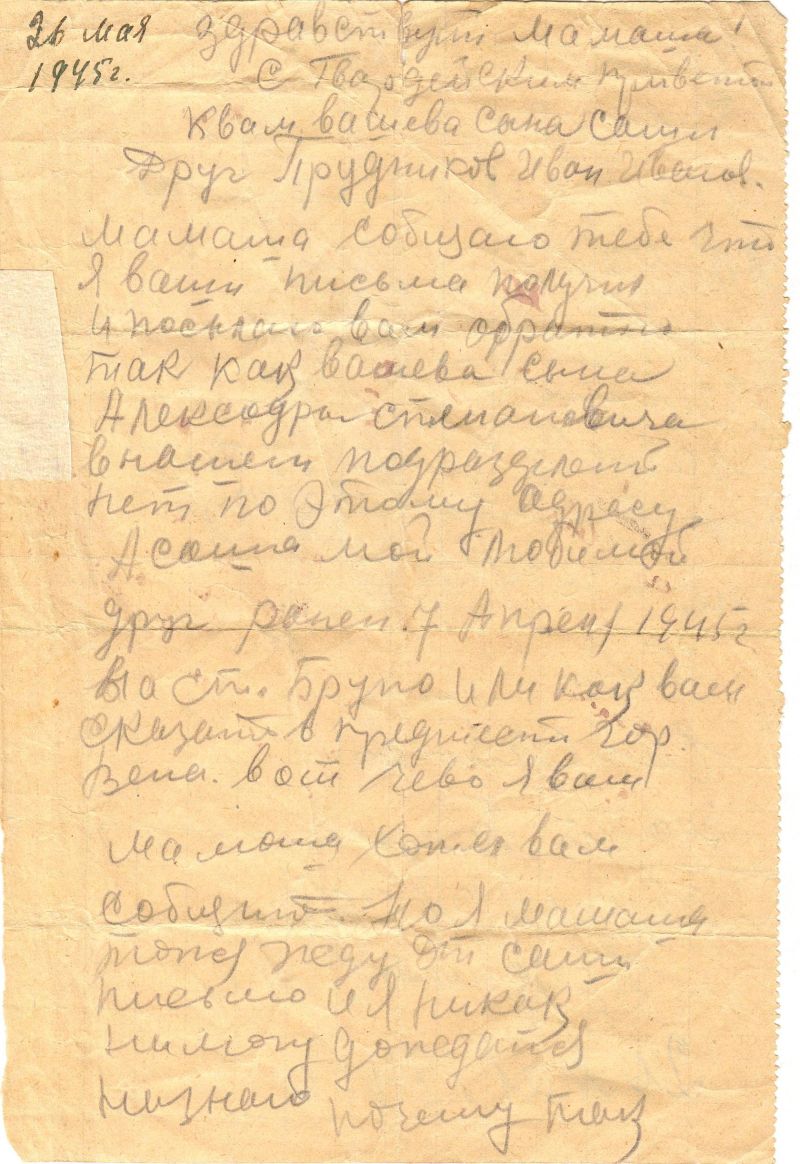 26 мая
1945 г.
Здравствути мамаша!
С Гвардейским приветом
к вам вашева сына Саши
Друг Прудников Иван Иванов.
мамаша собщаю тебе что
Я ваши письма получил
и посылаю вам обратно
так как вашева сына
Александра Стипановича
в нашем подразделени
нет по этому адресу
А Саша мой любимой
друг ранен 7 Апреля 1945 г
на ст. Бруно или как вам
сказать в предмести гор
Вена. вот чево я вам
мамаша хотел вам
собщить. Но я мамаша
тоже жду от Саши
письмо и я никак
ни могу дождатся
низнаю почему так